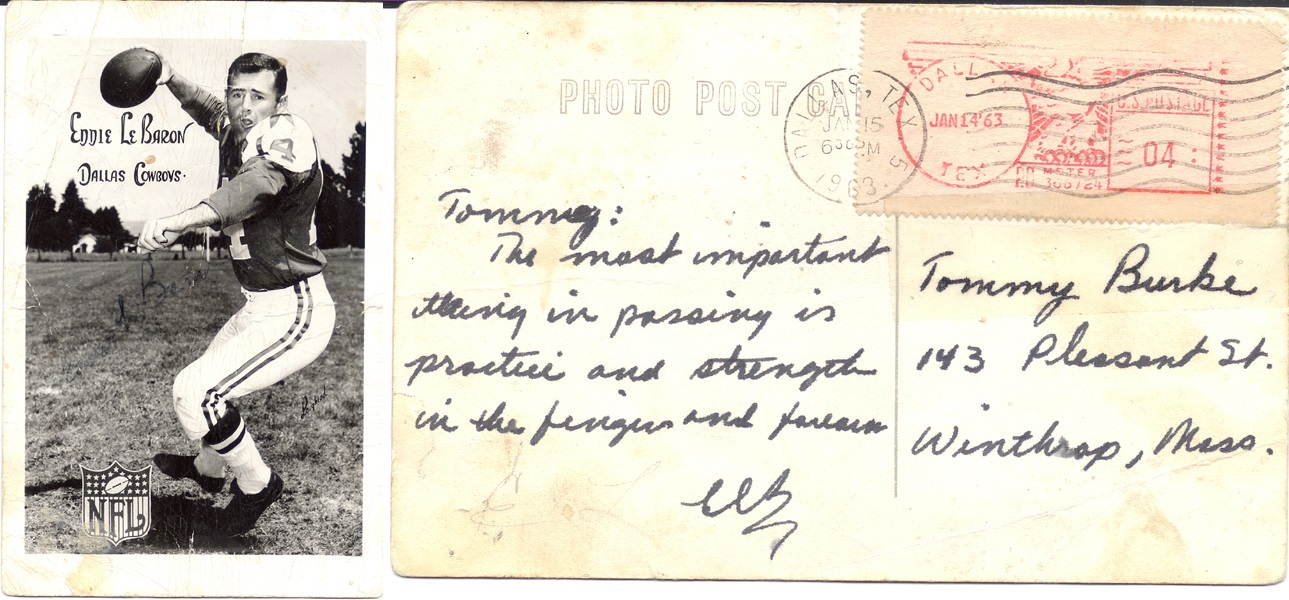 EDDIE LE BARON
DALLAS COWBOYS.
14
NFL
PHOTO POST CA
DALLAS, TEX
JAN 15
1963
DALL
JAN 14 '63
TEX
U.S. POSTAGE
04
P.B. METER
Tommy:
The most important
thing in passing is
practice and strength
in the fingers and forearm
Tommy Burke
143 Pleasant St.
Winthrop, Mass.